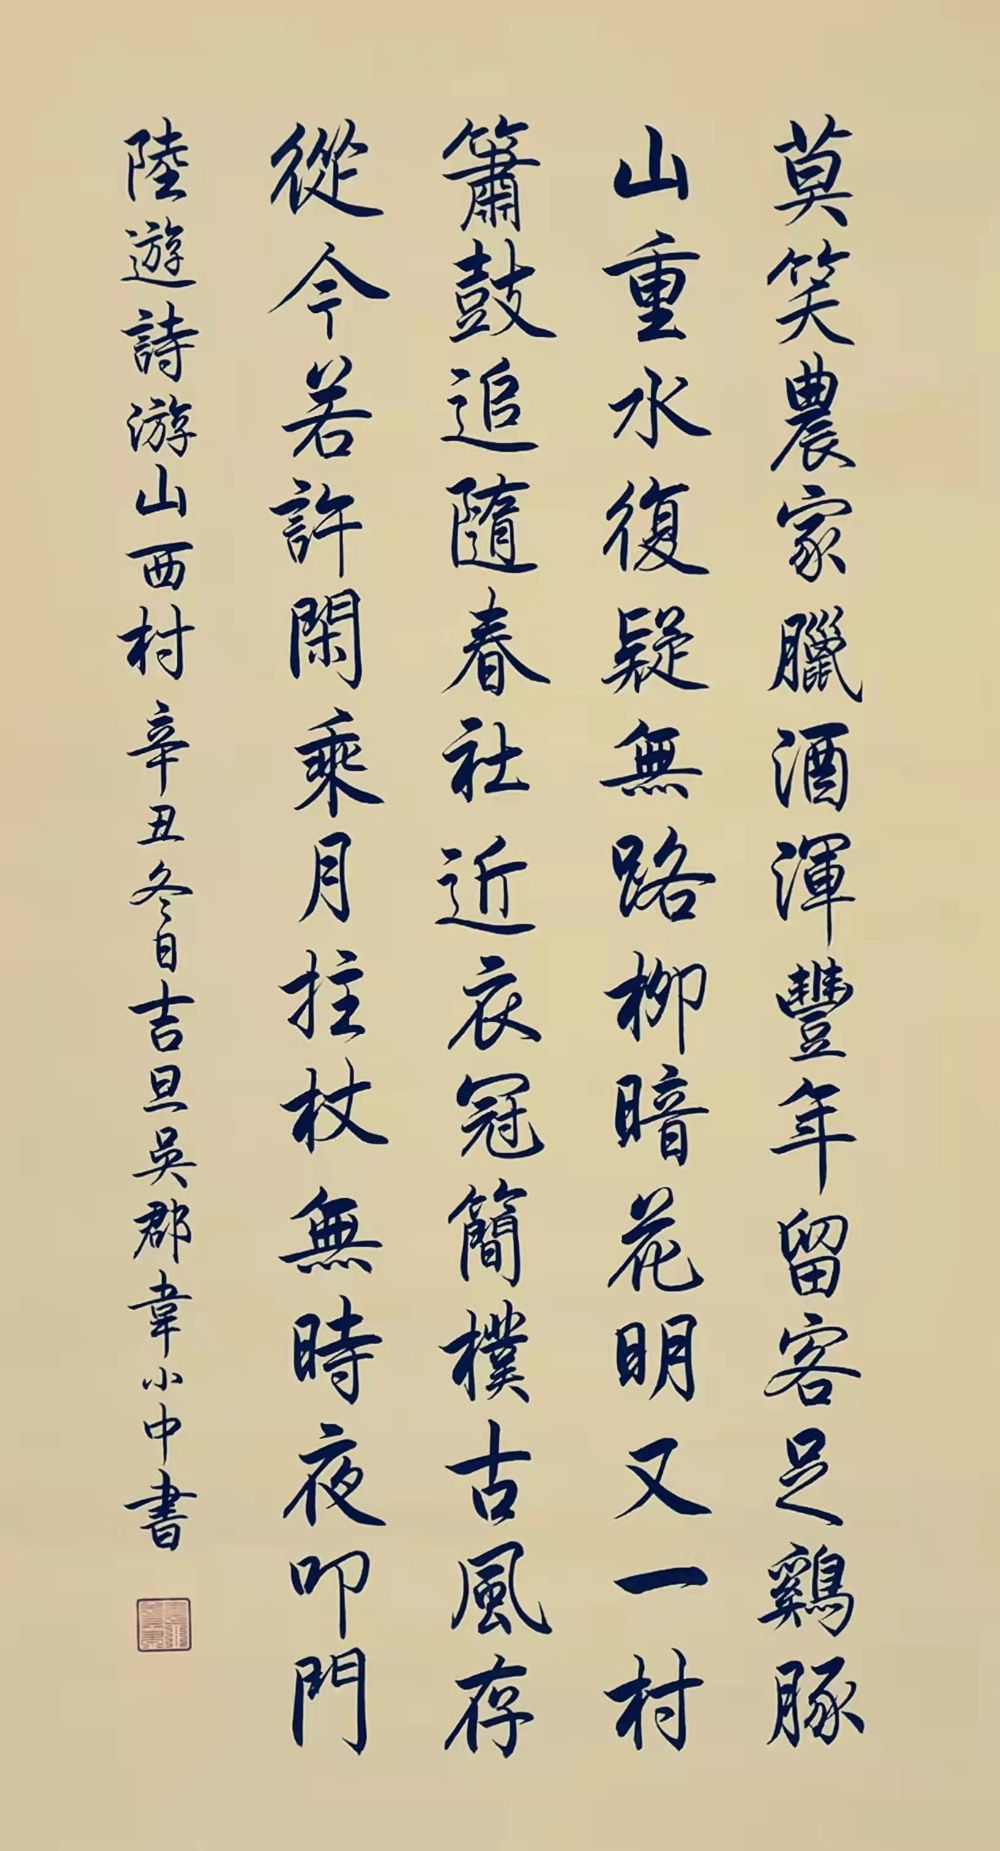 莫笑農家臘酒渾豐年留客足鷄豚
山重水復疑無路柳暗花明又一村
簫鼓追隨春社近衣冠簡樸古風存
從今若許閑乘月拄杖無時夜叩門
陸遊詩游山西村辛丑冬日吉旦吳郡韋小中書